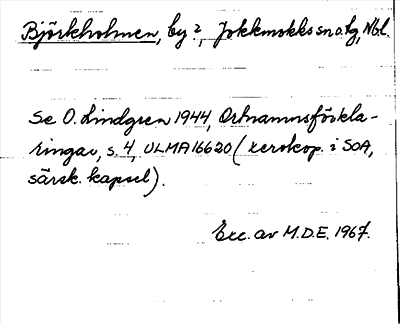 Björkholmen, by?, Jokkmokks sn o. lg, Nbl.
Se O. Lindgren 1944, Ortnamnsförkla-
ringar, s. 4, ULMA 16620 (xerokop. i SOA,
särsk. kapsel).
Exc. av M.D.E. 1967.